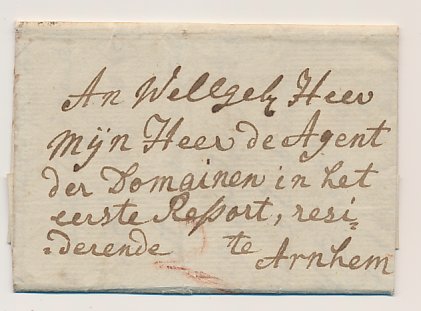 An Wellgel. Heer
Mijn Heer de Agent
der Domainen in het
eerste Ressort, resi⸗
⸗derende te
Arnhem